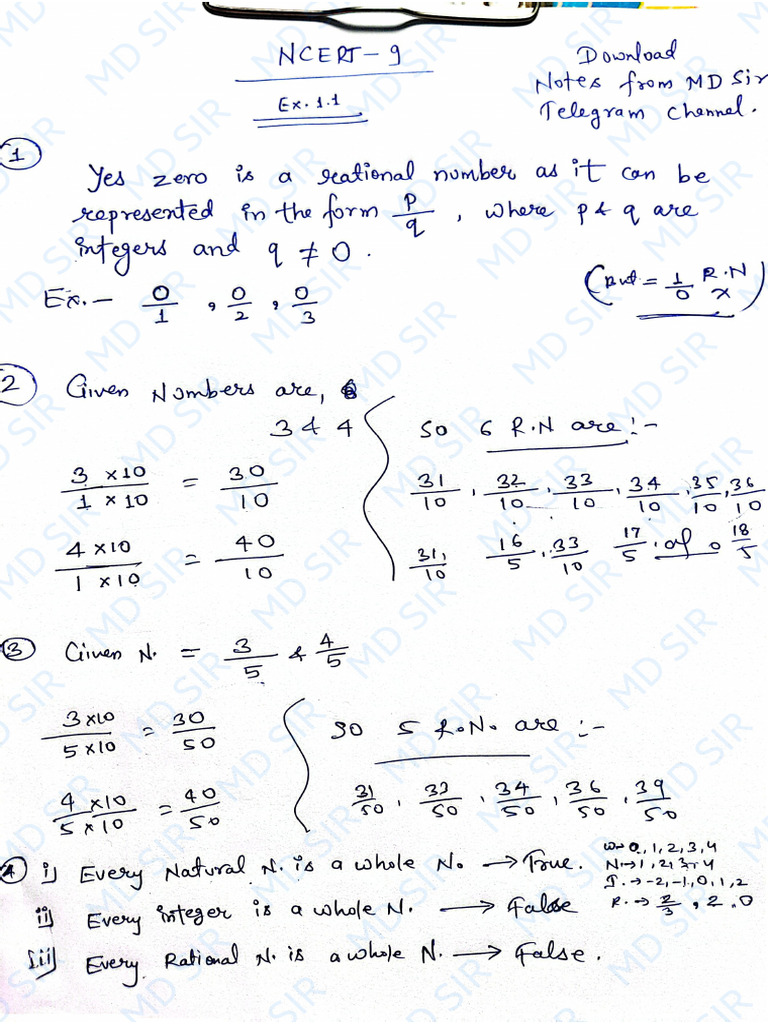 NCERT - 9
Ex. 1.1
Download
Notes from MD Sir
Telegram Channel.
① Yes zero is a rational number as it can be
represented in the form p/q , where p & q are
integers and q ≠ 0 .
Ex. - 0/1 , 0/2 , 0/3
(But = 1/0 R.N x)
② Given Numbers are,
3 & 4
3 × 10 / 1 × 10 = 30/10
4 × 10 / 1 × 10 = 40/10
So 6 R.N are :-
31/10 , 32/10 , 33/10 , 34/10 , 35/10 , 36/10
31/10 , 16/5 , 33/10 17/5 . 18/5
③ Given N. = 3/5 & 4/5
3 × 10 / 5 × 10 = 30/50
4 × 10 / 5 × 10 = 40/50
So 5 R.N. are :-
31/50 , 33/50 , 34/50 , 36/50 , 39/50
④ i) Every Natural N. is a whole N. → True.
ii) Every integer is a whole N. → False
iii) Every Rational N. is a whole N. → False .
W→ 0, 1, 2, 3, 4
N→ 1, 2, 3, 4
I. → -2, -1, 0, 1, 2
R. → 2/3 , 2.0
MD SIR